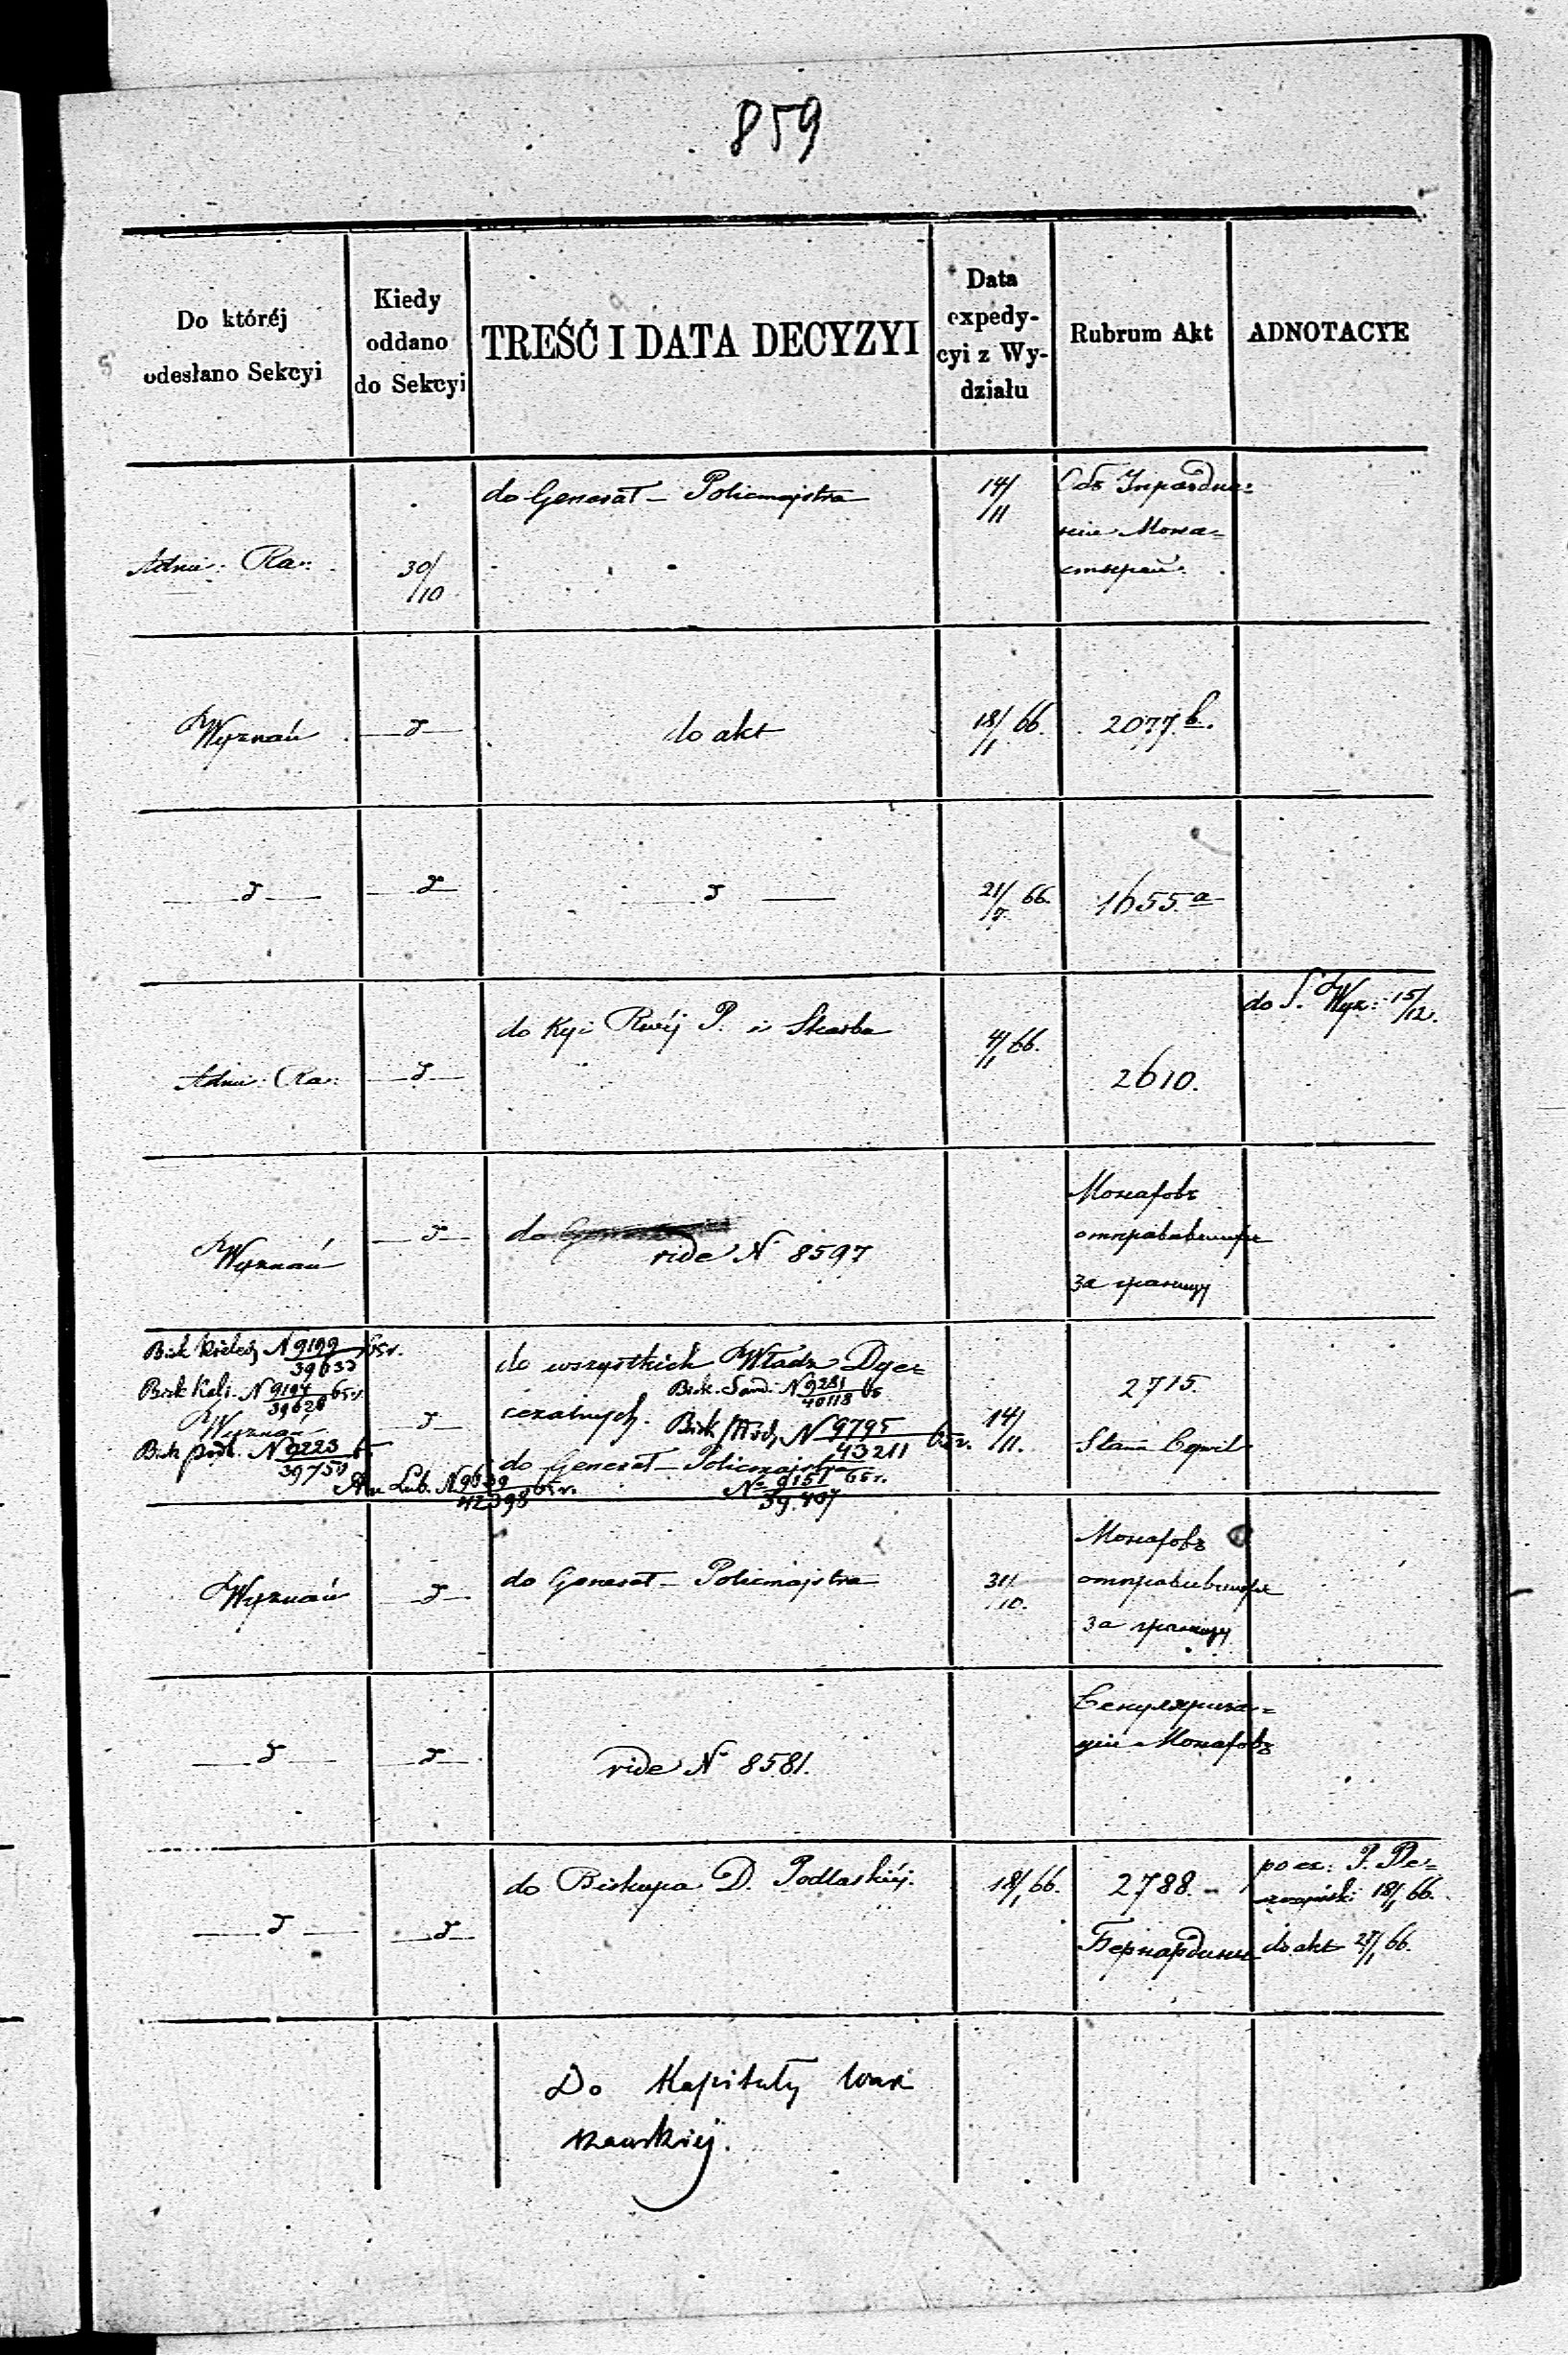 859
Do któréj
odesłano Sekcyi
Kiedy
oddano
do Sekcyi
TREŚĆ I DATA DECYZYI
Data
expedy-
cyi z Wy-
działu
Rubrum Akt
ADNOTACYE
do Generał - Policmajstra
14/11
Объ Упраздне=
ніи Мона=
стырей.
Admi: Ra::
30/10
Wyznań
do akt
18/1 66.
2077 b.
21/7 66.
1655 a
do S. Wyz: 15/12.
do Kyi Rwéj P. i Skarbu
4/1 66.
Admi: Ra::
2610.
Wyznań
do
vide N 8597
Монаховъ
отправившихся
за границу
Bisk Kielec N 9199/39633 65 r.
Bisk Kali. N 9194/39628 65 r
Wyznań
Bisk podl. N 9223/39750 65
Am Lub. N 9639/42398 65 r.
do wszystkich Władz Dye=
Bisk. Sand. N 9281/40118 65
cezalnych. N 9795/43211 65 r.
do Generał - Policmajstra
N 9151/39.407 65 r.
14/11.
2715.
Stanu Cywil
Wyznań
do Generał - Policmajstra
31/10.
Монаховъ
отправившихся
за границу
vide N 8581.
Секуляриза=
ціи Монаховъ
do Biskupa D. Podlaskiéj.
18/1 66.
2788.
Бернардины
po ex: P. 18/1 66.
do akt 27/1 66.
Do Kapituły War
szawskiéj.